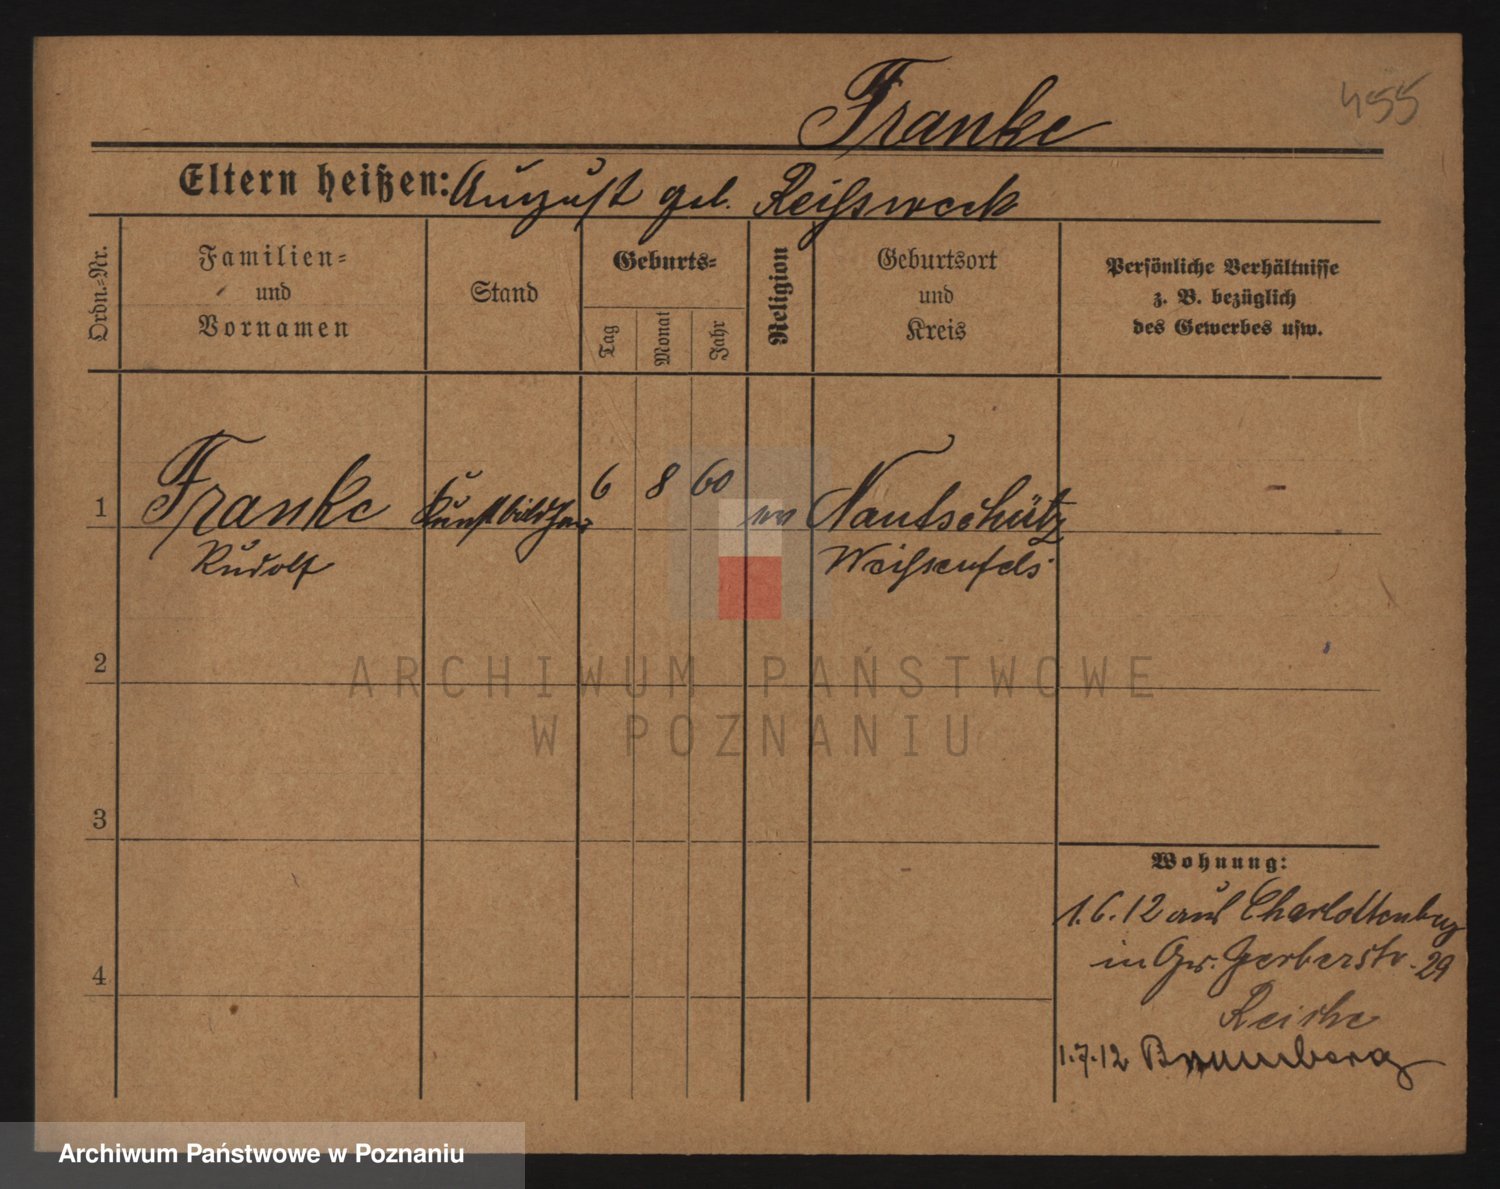 455
Franke
Eltern heißen: August geb. Reißsweck
Ordn.-Nr.
Familien-
und
Vornamen
Stand
Geburts-
Tag
Monat
Jahr
Religion
Geburtsort
und
Kreis
Persönliche Verhältnisse
z. B. bezüglich
des Gewerbes usw.
1 Franke Kunstbildhau 6 8 60 Nautschütz -
Rudolf Weißenfels
2
3
4
Wohnung:
1.6.12 aus Charlottenburg
in Gerberstr. 29
Reiche
1.7.12 Bromberg
ARCHIWUM PAŃSTWOWE
W POZNANIU
Archiwum Państwowe w Poznaniu